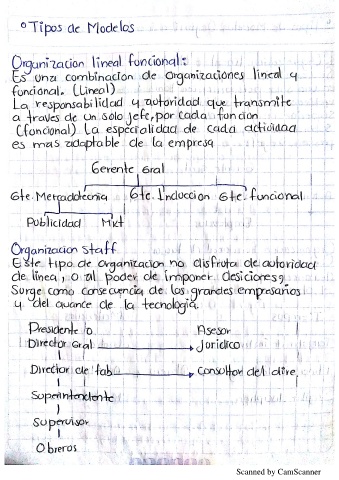 ° Tipos de Modelos
Organizacion lineal funcional:
Es una combinacion de organizaciones lineal y
funcional. (Lineal)
La responsabilidad y autoridad que transmite
a traves de un solo jefe, por cada funcion
(foncional) La especialidad de cada actividad
es mas adaptable de la empresa
Gerente Gral
Gte. Mercadotecnia Gte. Induccion Gte. funcional
Publicidad Mkt
Organizacion Staff
Este tipo de organizacion no disfruta de autoridad
de linea, o al poder de imponer desiciones,
Surge como consecuencia de las grandes empresarios
y del avance de la tecnologia.
Presidente o Asesor
Director Gral Joridico
Director de fab Consultor del dire
Superintendente
Supervisor
Obreros
Scanned by CamScanner